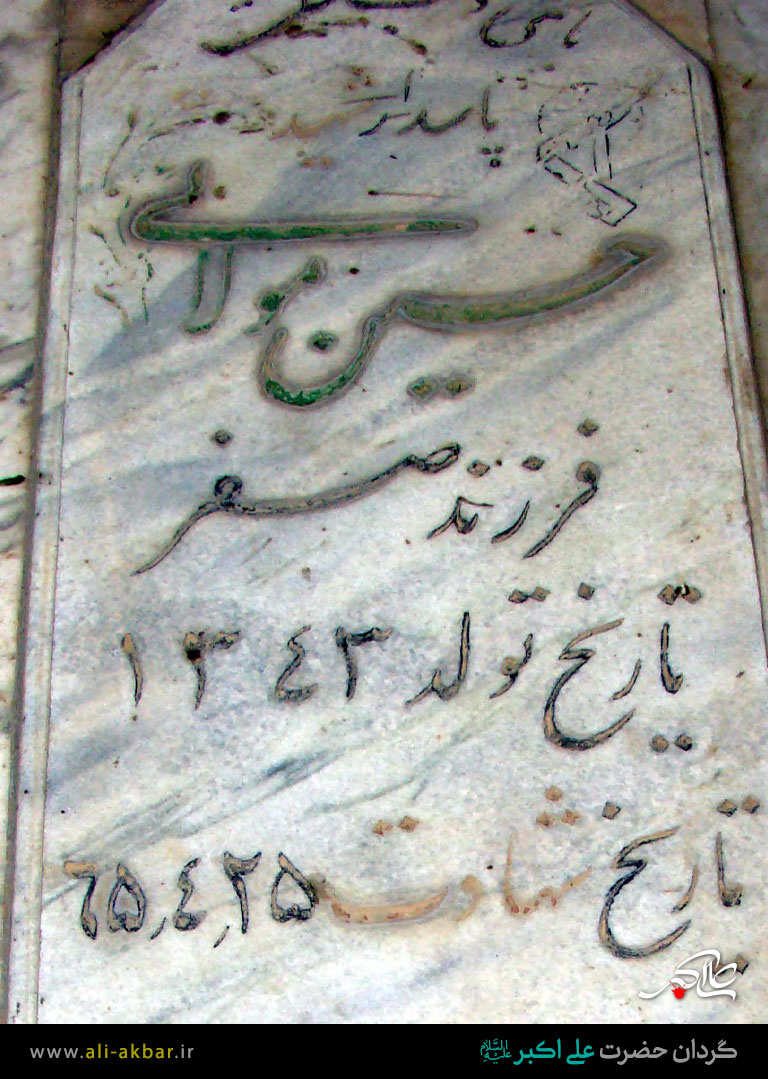 پاسدار شهید
حسن مولائی
فرزند صفر
تاریخ تولد ۱۳۴۳
تاریخ شهادت ۶۵٫۴٫۲۵
علی اکبر
www.ali-akbar.ir
گردان حضرت علی اکبر علیه السلام